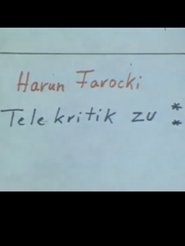 Harun Farocki
Telekritik zu **